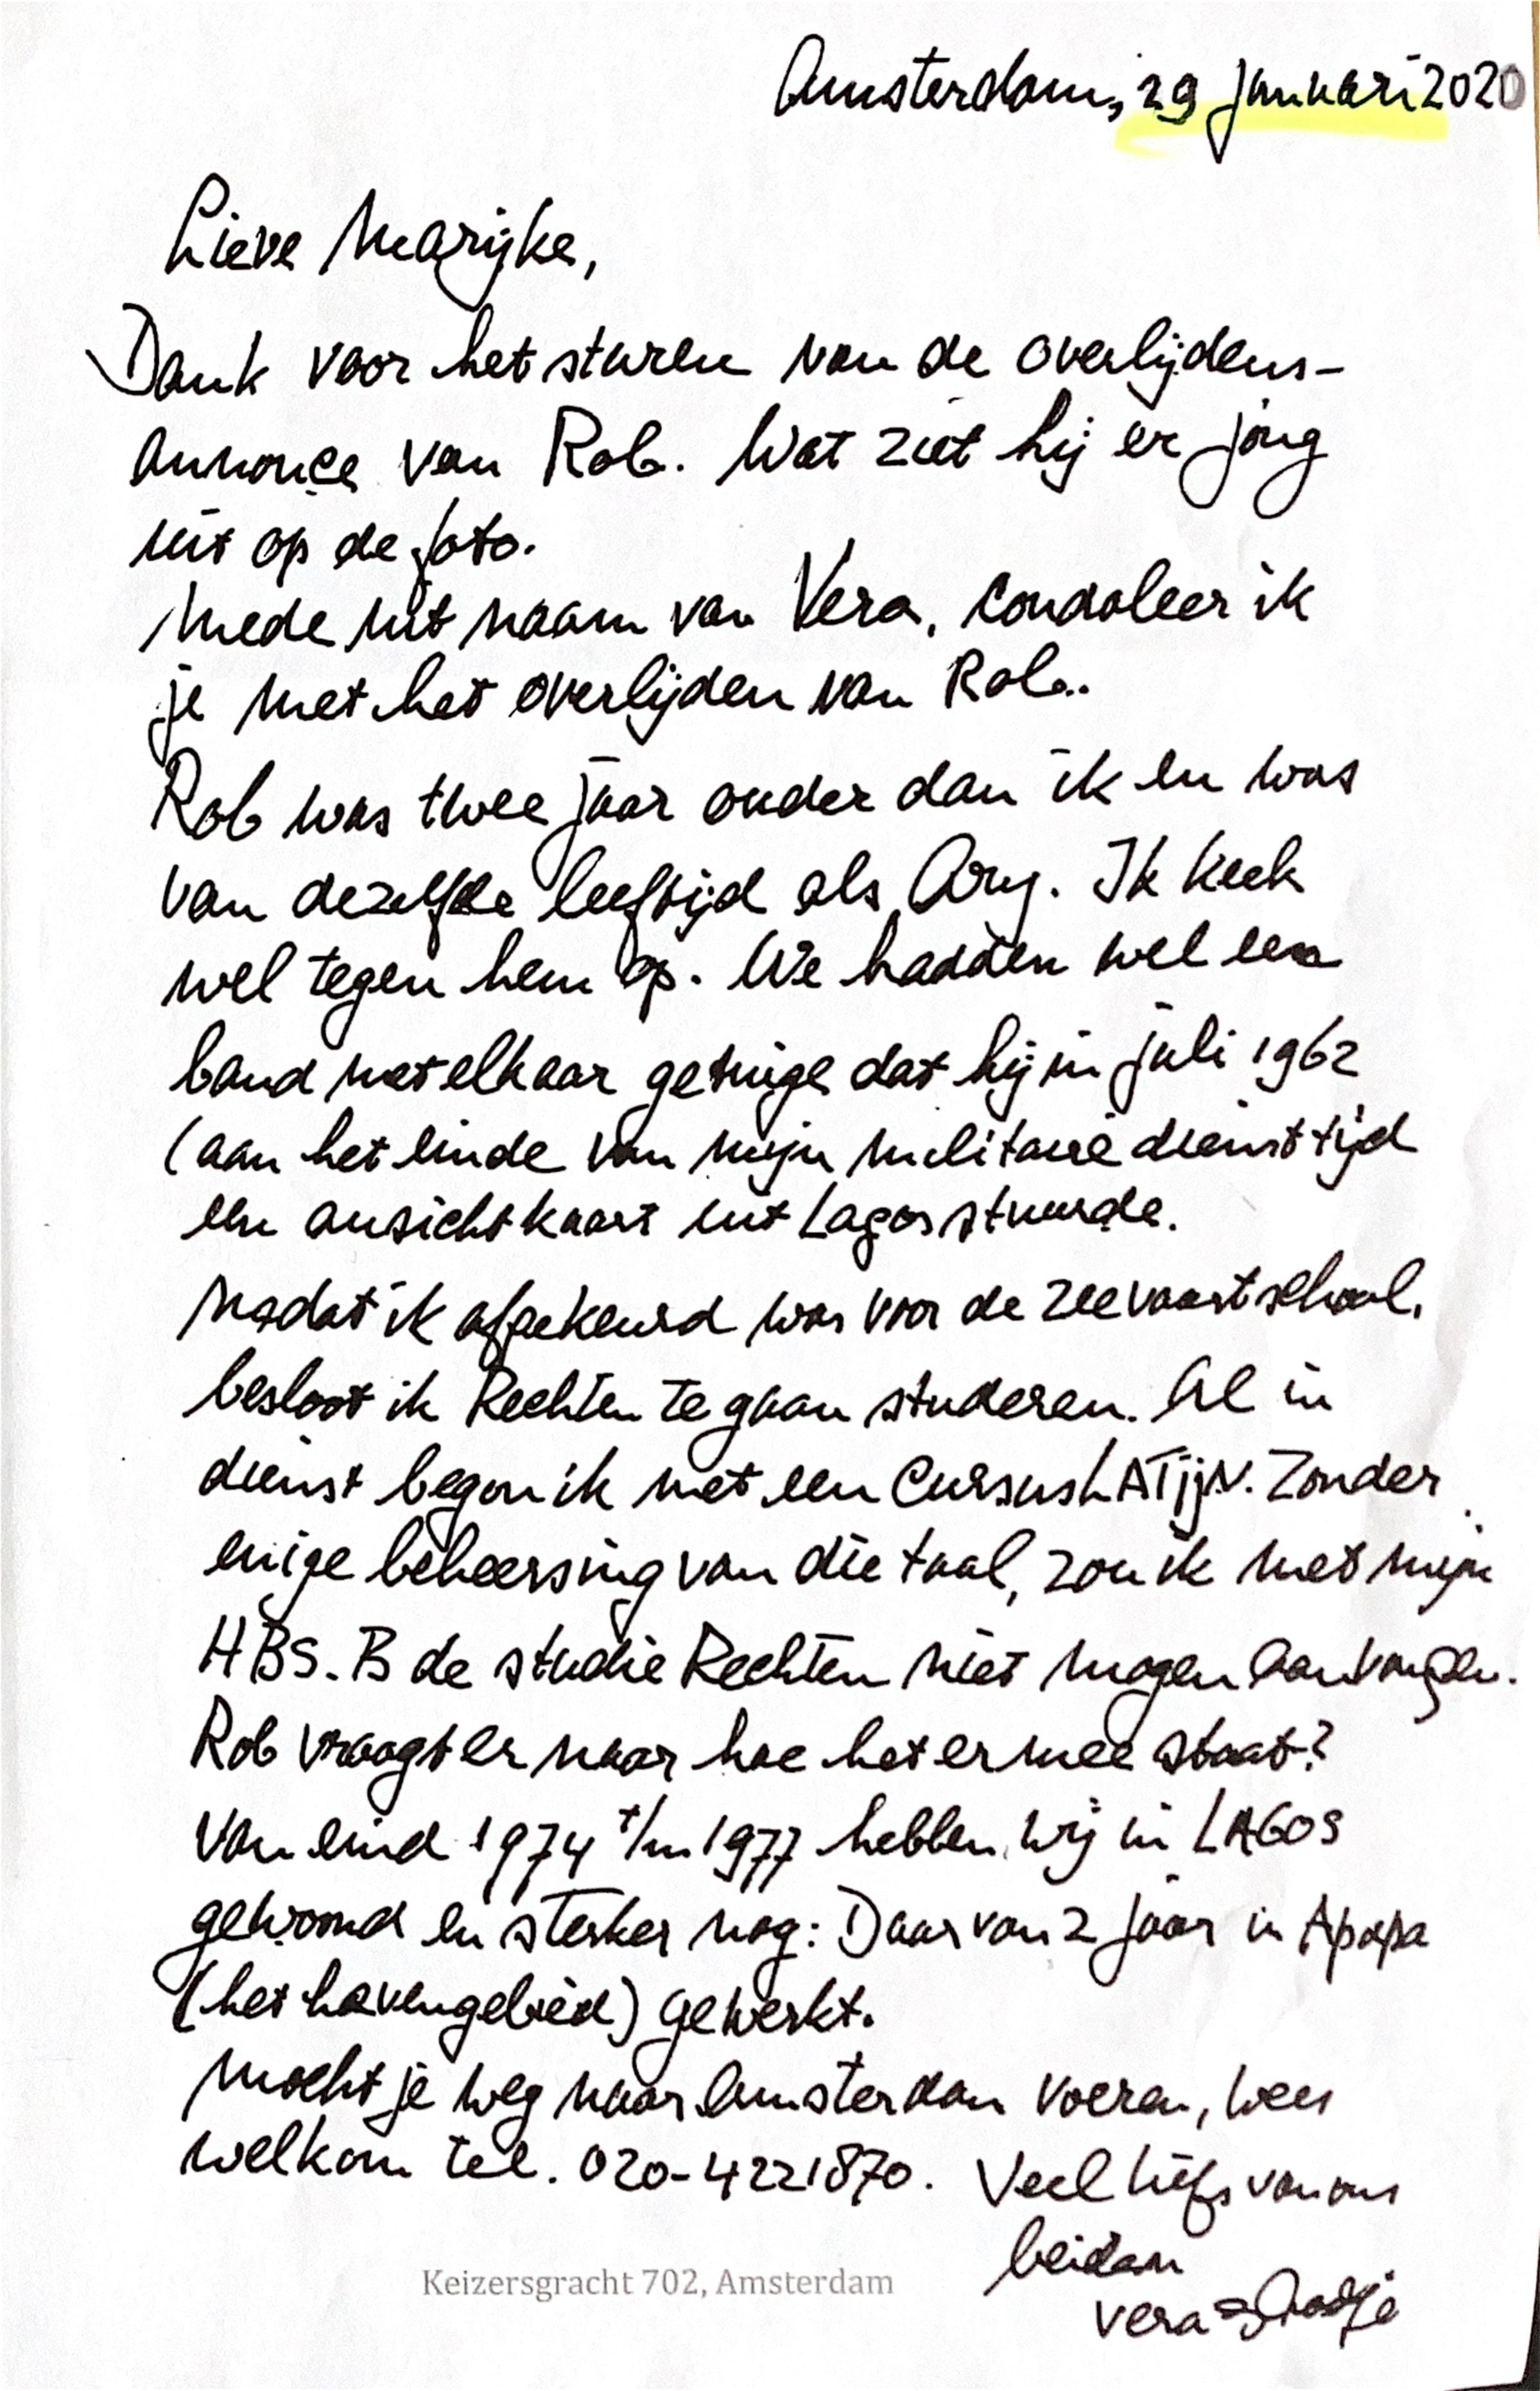 Amsterdam, 29 januari 2020
Lieve Marijke,
Dank voor het sturen van de overlijdens-
annonce van Rob. Wat ziet hij er jong
uit op de foto.
Mede uit naam van Vera, condoleer ik
je met het overlijden van Rob..
Rob was twee jaar ouder dan ik en was
van dezelfde leeftijd als Ary. Ik keek
wel tegen hem op. We hadden wel een
band met elkaar getuige dat hij in juli 1962
(aan het einde van mijn militaire diensttijd
een ansichtkaart uit Lagos stuurde.
Nadat ik afgekeurd was voor de zeevaartschool,
besloot ik Rechten te gaan studeren. Al in
dienst begon ik met een Cursus LATijN. Zonder
enige beheersing van die taal, zou ik met mijn
HBS.B de studie Rechten niet mogen aanvangen.
Rob vraagt er naar hoe het ermee staat?
Van eind 1974 t/m 1977 hebben wij in LAGOS
gewoond en sterker nog: Daarvan 2 jaar in Apapa
(het havengebied) gewerkt.
Mocht je weg naar Amsterdam voeren, wees
welkom tel. 020-4221870. Veel liefs van ons
beiden
Vera
Keizersgracht 702, Amsterdam